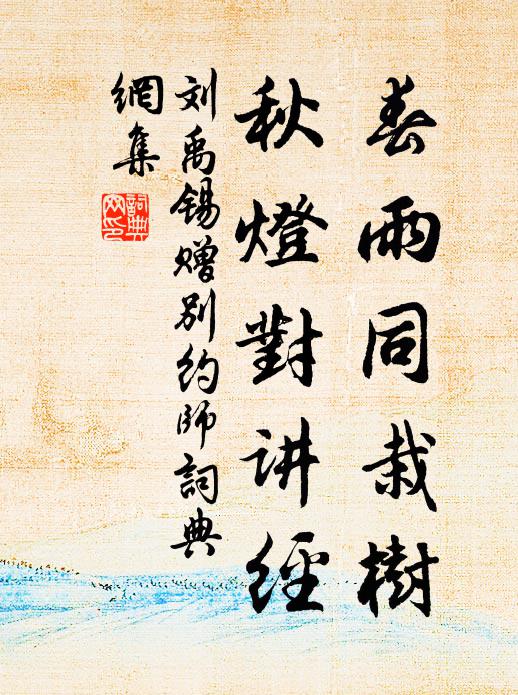 春雨同栽樹
秋燈對讲經
刘禹锡赠别约师詞典
網集
詞典
网印